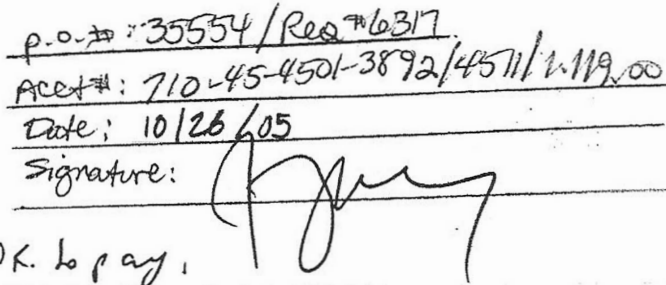 p.o.#: 35554 / Req #6317
Acct#: 710-45-4501-3892/4511/1,119.00
Date: 10/26/05
Signature:
OK. to pay.